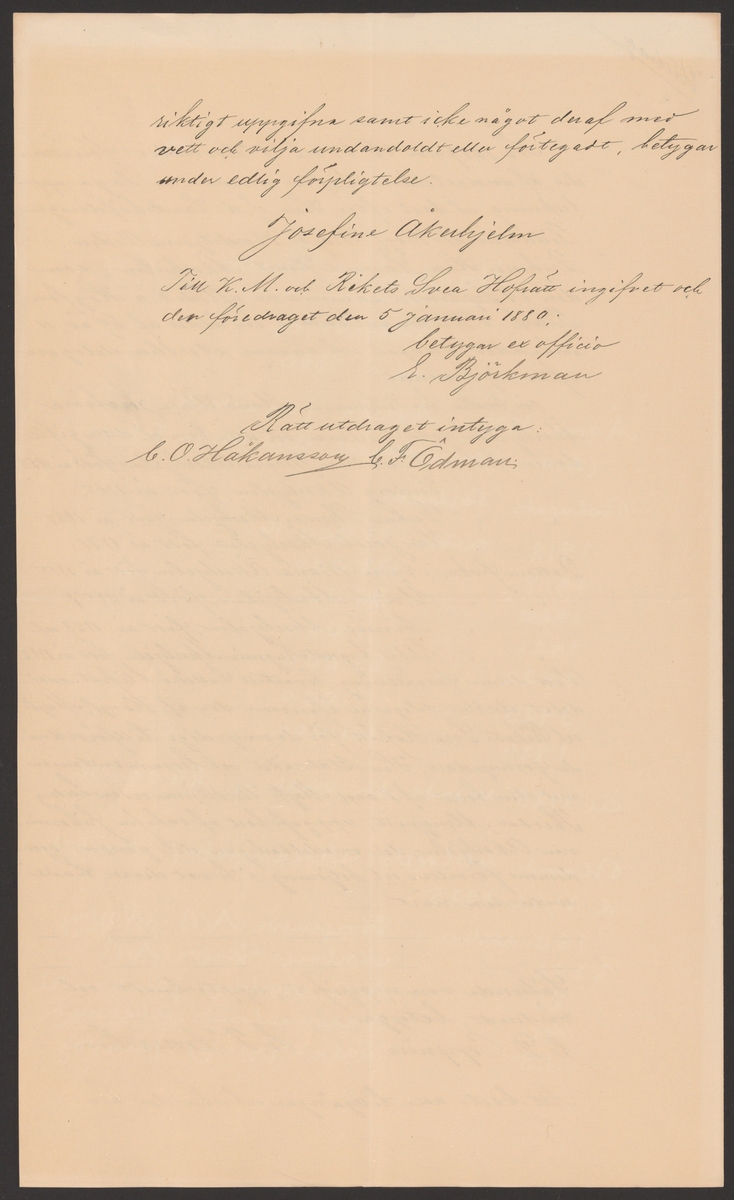 riktigt uppgifna samt icke något deraf med
vett och vilja undandoldt eller förtegadt, betygar
under edlig förpligtelse.
Josefine Åkerhjelm
Till K. M. och Rikets Svea Hofrätt ingifvet och
der föredraget den 5 januari 1880;
betygar ex officio
E. Björkman
Rätt utdraget intyga:
C. O. Håkansson C. F. Ödman.